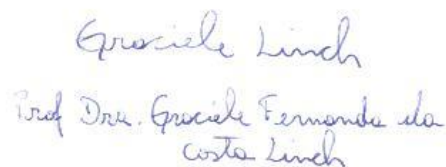 Graciele Linch
Prof Dra. Graciele Fernanda da
costa Linch